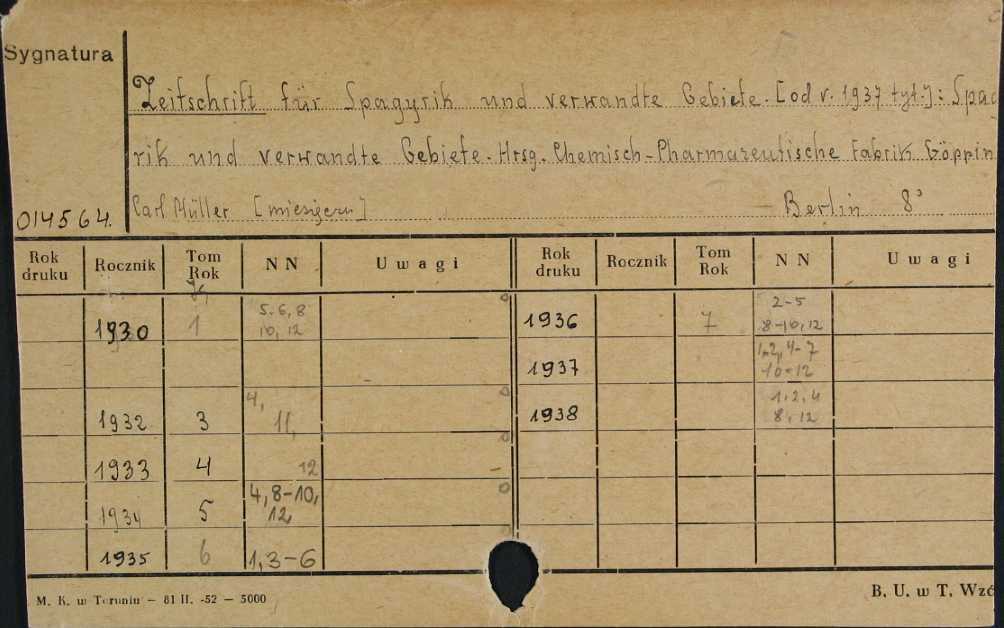 Sygnatura
Zeitschrift für Spagyrik und verwandte Gebiete. [od r. 1937 tyt.]: Spag
rik und verwandte Gebiete. Hrsg. Chemisch-Pharmazeutische Fabrik Göppin
014564. Carl Müller [miesięczn.] Berlin 8°
Rok druku Rocznik Tom Rok NN Uwagi Rok druku Rocznik Tom Rok NN Uwagi
1930 1 5-6, 8 10, 12 1936 7 2-5 8-10, 12
1937 1-2, 4-7 10-12
1932 3 4, 11, 1938 1, 2, 4 8, 12
1933 4 12
1934 5 4, 8-10, 12,
1935 6 1, 3-6
M. K. w Toruniu — 81 II. -52 — 5000 B. U. w T. Wzó